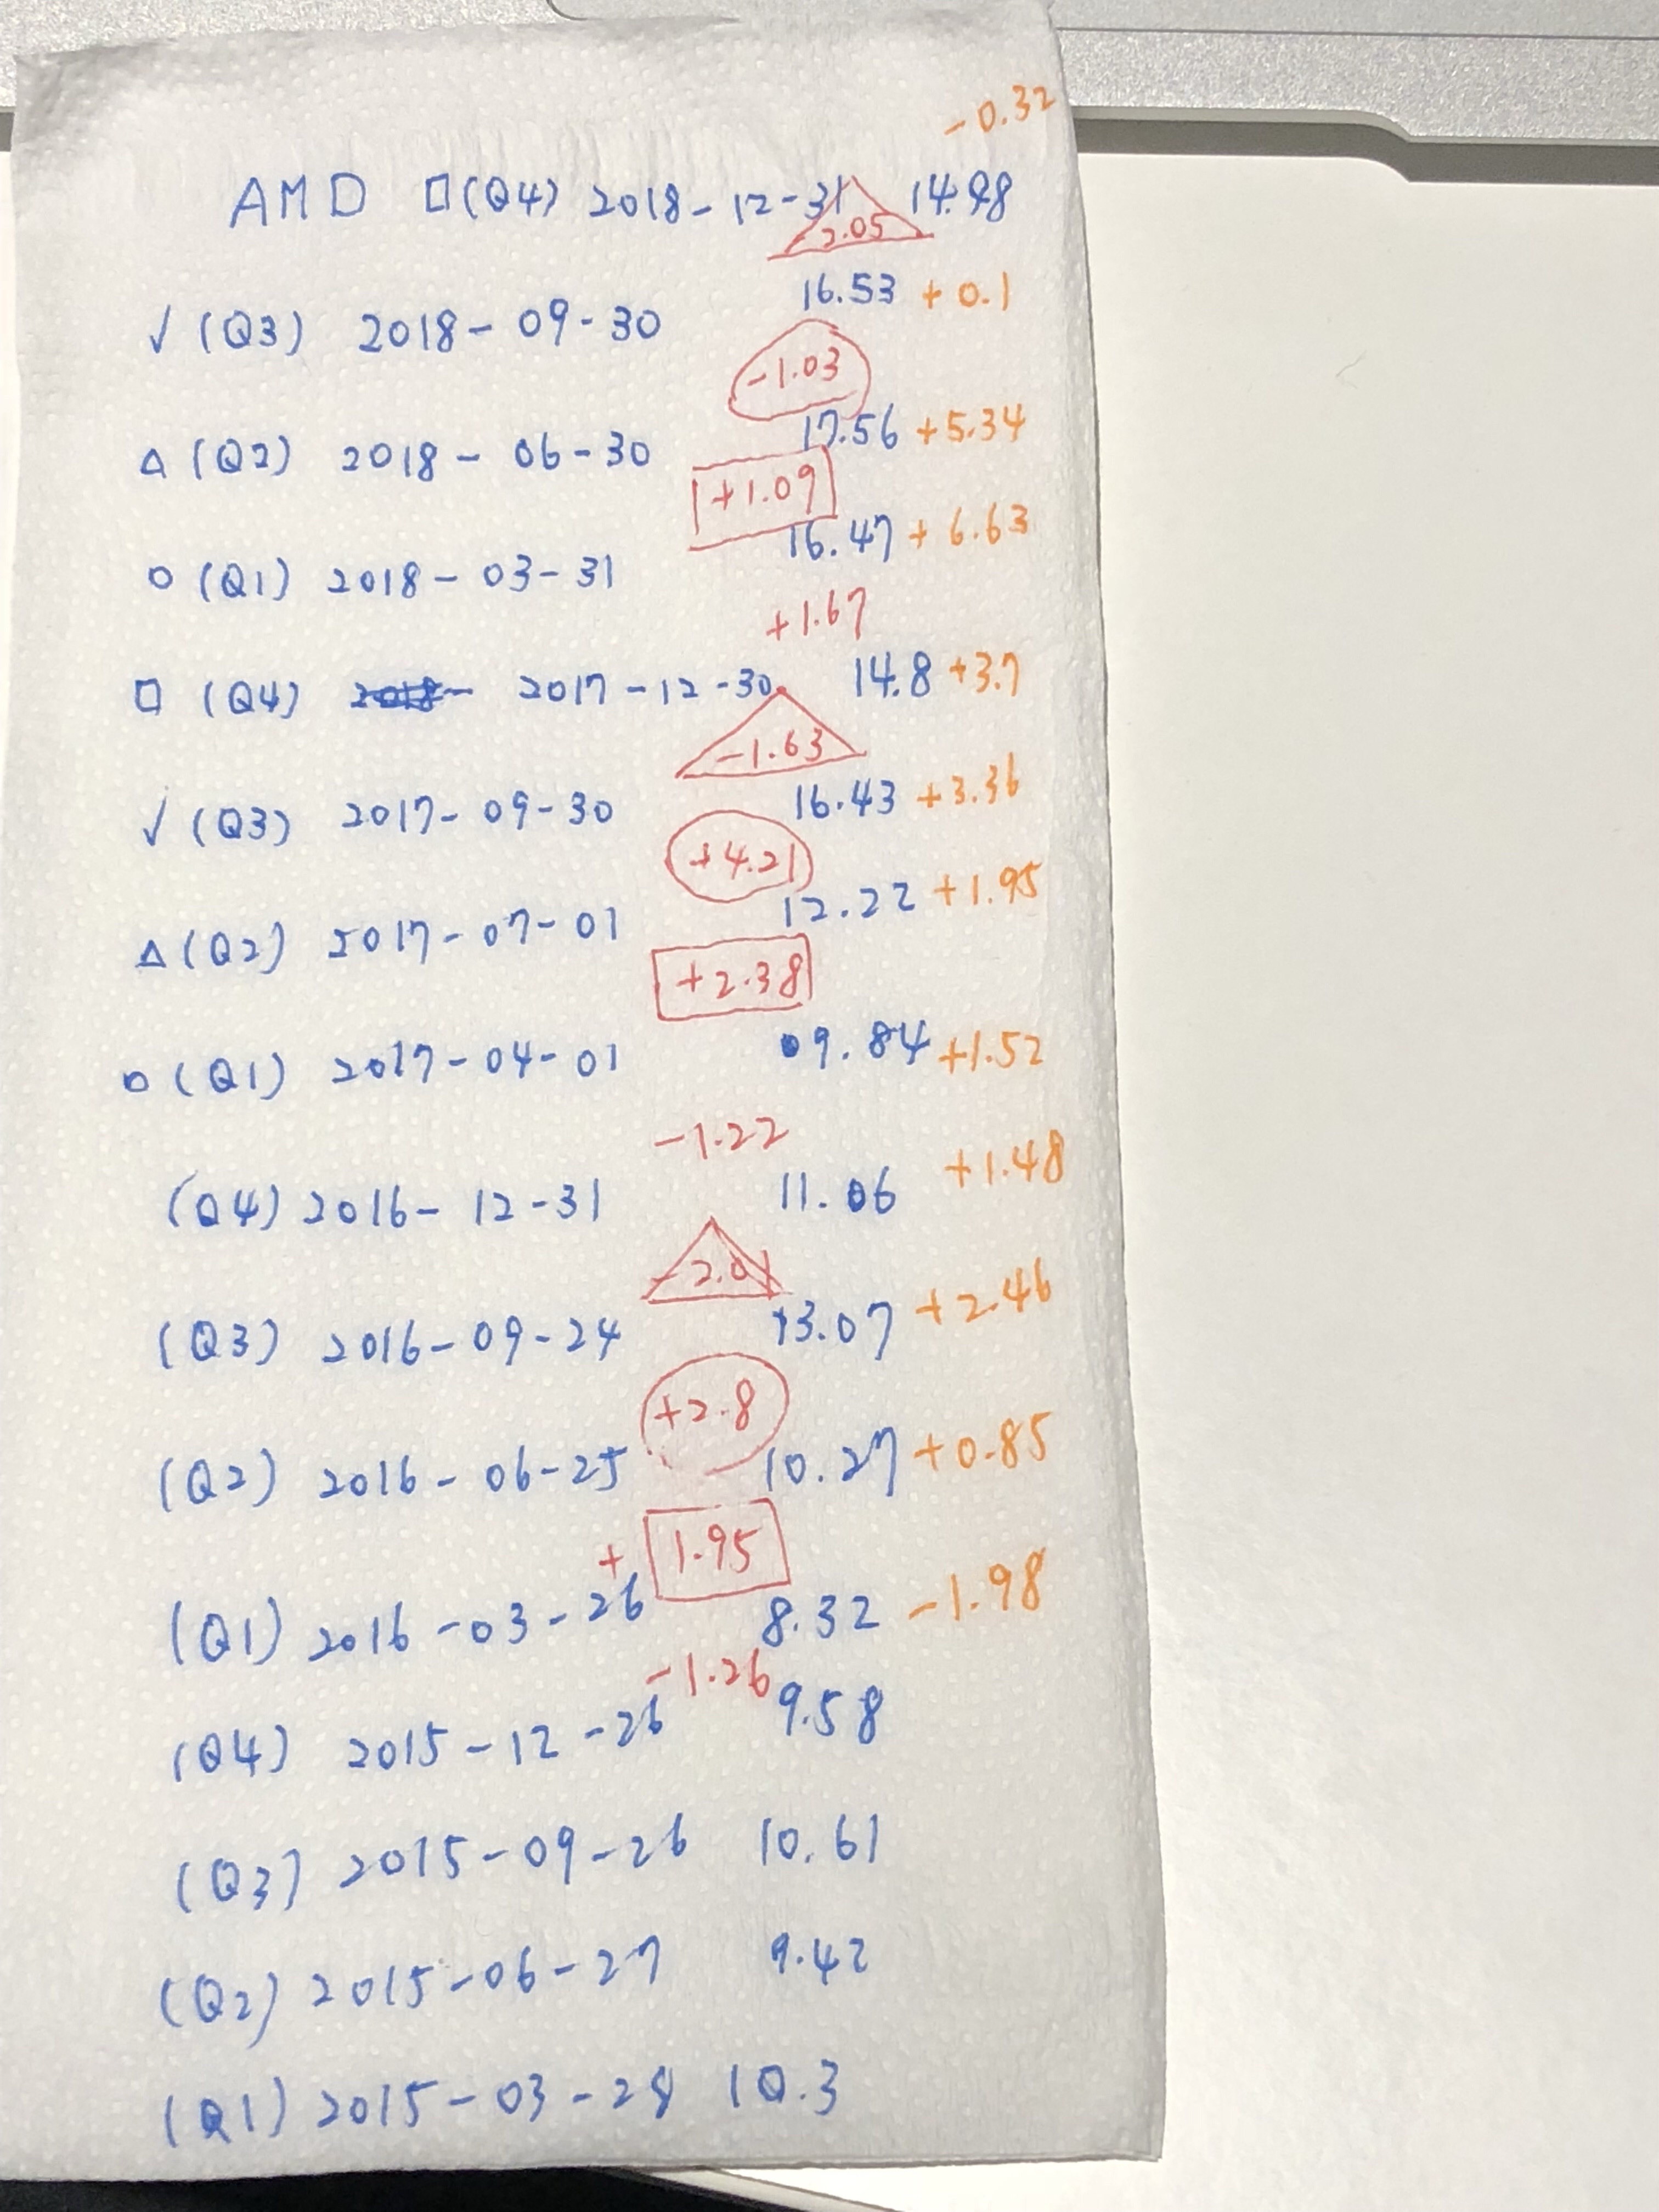 -0.32
AMD □(Q4) 2018-12-31 14.98
-2.05
16.53 +0.1
√ (Q3) 2018-09-30
-1.03
17.56 +5.34
△ (Q2) 2018-06-30
+1.09
16.47 +6.63
○ (Q1) 2018-03-31
+1.67
□ (Q4) 2017-12-30 14.8 +3.7
-1.63
√ (Q3) 2017-09-30 16.43 +3.36
+4.21
12.22 +1.95
△ (Q2) 2017-07-01
+2.38
○ (Q1) 2017-04-01 09.84 +1.52
-1.22
(Q4) 2016-12-31 11.06 +1.48
-2.01
(Q3) 2016-09-24 13.07 +2.46
+2.8
(Q2) 2016-06-25 10.27 +0.85
+ 1.95
(Q1) 2016-03-26 8.32 -1.98
-1.26
(Q4) 2015-12-26 9.58
(Q3) 2015-09-26 10.61
(Q2) 2015-06-27 9.42
(Q1) 2015-03-28 10.3